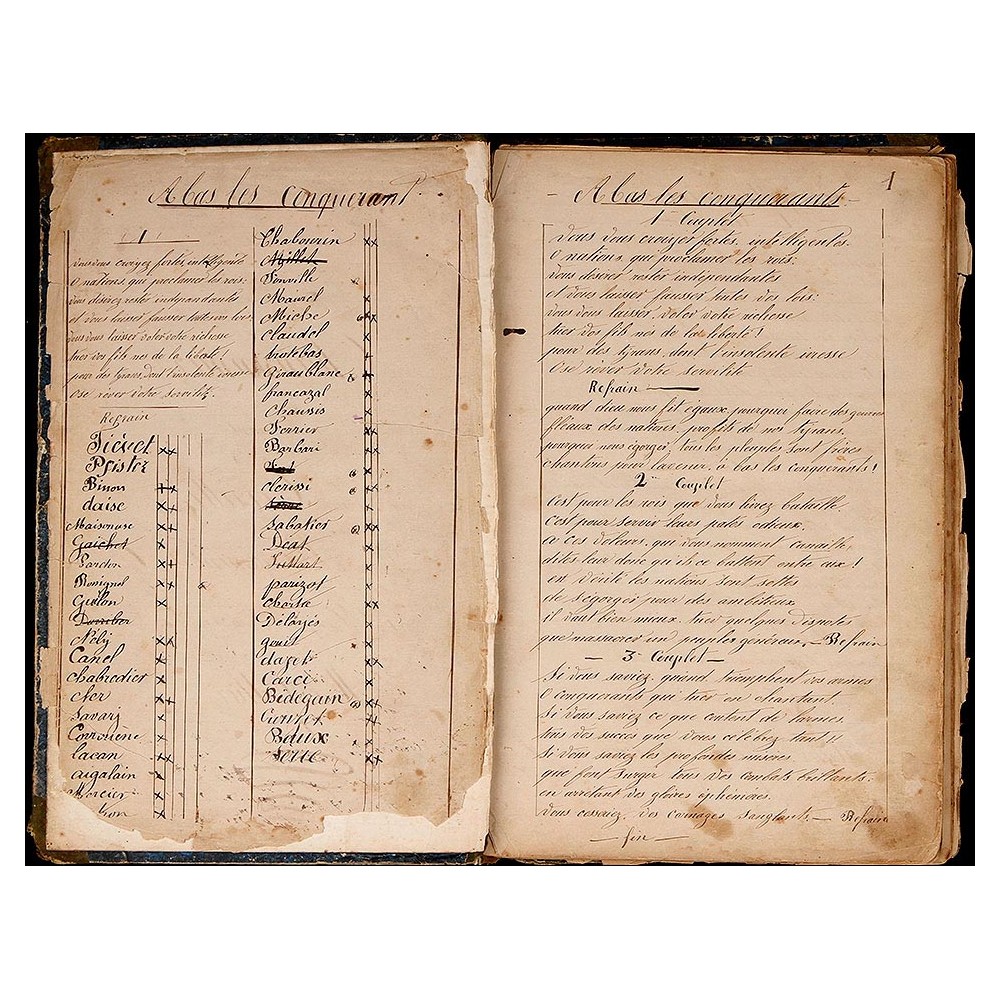 A bas les conquerant
1
Vous vous croyez fortes, intelligente
O nations, que proclamer les rois:
vous désirez rester indépendantes
et vous laisser fausser toutes vos lois
vous vous laisser voler votre richesse
hier vos fils nés de la liberté!
pour des tyrans, dont l'insolente ivresse
Ose rêver votre servilité.
Refrain
Pfister
Binon
daise
Maisonase
Gaichet
Bonignol
Gidon
Nély
Canel
chabredier
clor
Savary
lacan
aigalain
Mercier
Chabourin
Millet
Maurel
Miche
claudel
Giraublanc
francazal
Chaussis
Ferrier
Barbari
clerissi
Sabatier
Déat
parizot
Délayés
Bédeguin
Baux
Serre
1
- A bas les conquerants -
1 Couplet
Vous vous croyez fortes, intelligentes
O nations, que proclamer les rois;
vous désirez rester indépendantes
et vous laisser fausser toutes vos lois:
vous vous laisser, voler votre richesse
hier vos fils nés de la liberté!
pour des tyrans, dont l'insolente ivresse
Ose rêver votre servilité
Refrain
quand dieu nous fit égaux pourquoi faire des guerres
fléaux des nations, profits de nos tyrans,
pourquoi nous égorger, tous les peuples sont frères
chantons pour l'avenir, à bas les conquerants!
2me Couplet
C'est pour les rois que vous livrez bataille,
c'est pour servir leurs pates odieux,
à ces voleurs, qui vous nomment canaille,
dites leur donc qu'ils ce battent entre eux!
en vérité les nations sont sottes
de s'égorger pour des ambitieux
il vaut bien mieux, tuer quelques despotes
que massacrer un peuple généreux. — Refrain
— 3me Couplet —
Si vous saviez, quand triomphent vos armes
O conquerants qui tuez en chantant,
Si vous saviez ce que coutent de larmes,
tous des succès que vous célébrez tant!!
Si vous saviez les profondes misères
que font surgir tous vos combats brillants,
en arrêtant des gloires éphémères,
vous cesseriez, des carnages sanglants. — Refrain
— fin —